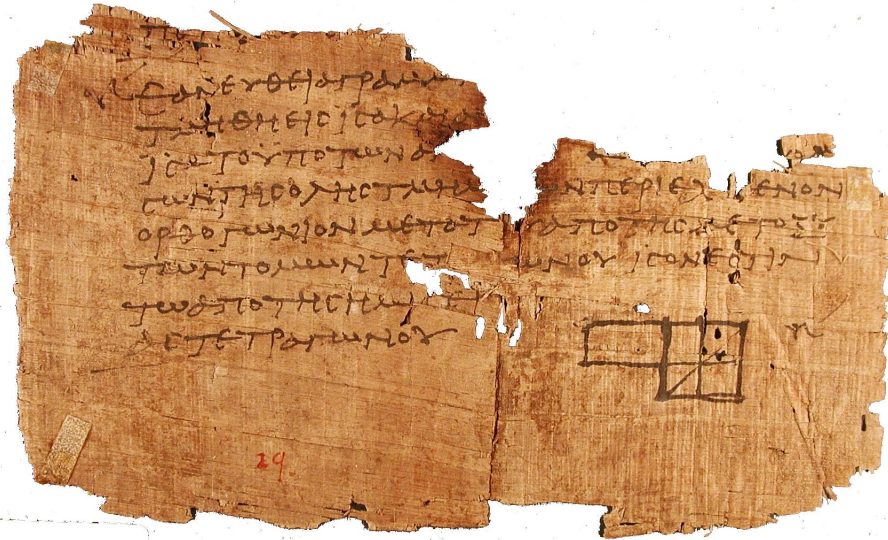 ΕΑΝΕΥΘΕΙΑΓΡΑΜΜ
ΤΜΗΘΗΕΙϹΙϹΑΚΑΙΑ
ΙϹΑΤΟΥΠΟΤΩΝΑ
ϹΩΝΤΗϹΟΛΗϹΤΜΗΜ ΩΝΠΕΡΙΕΧ ΕΝΟΝ
ΟΡΘΟΓΩΝΙΟΝΜΕΤΑΤ ΑΠΟΤΗϹΜΕΤΟΞΥ
ΤΩΝΤΟΜΩΝΤΕΤ ΩΝΟΥΙϹΟΝΕϹΤΙΝ
ΤΩΑΠΟΤΗϹΗΜΙ ΕΙ
ΑϹΤΕΤΡΑΓΩΝΟΥ
29.